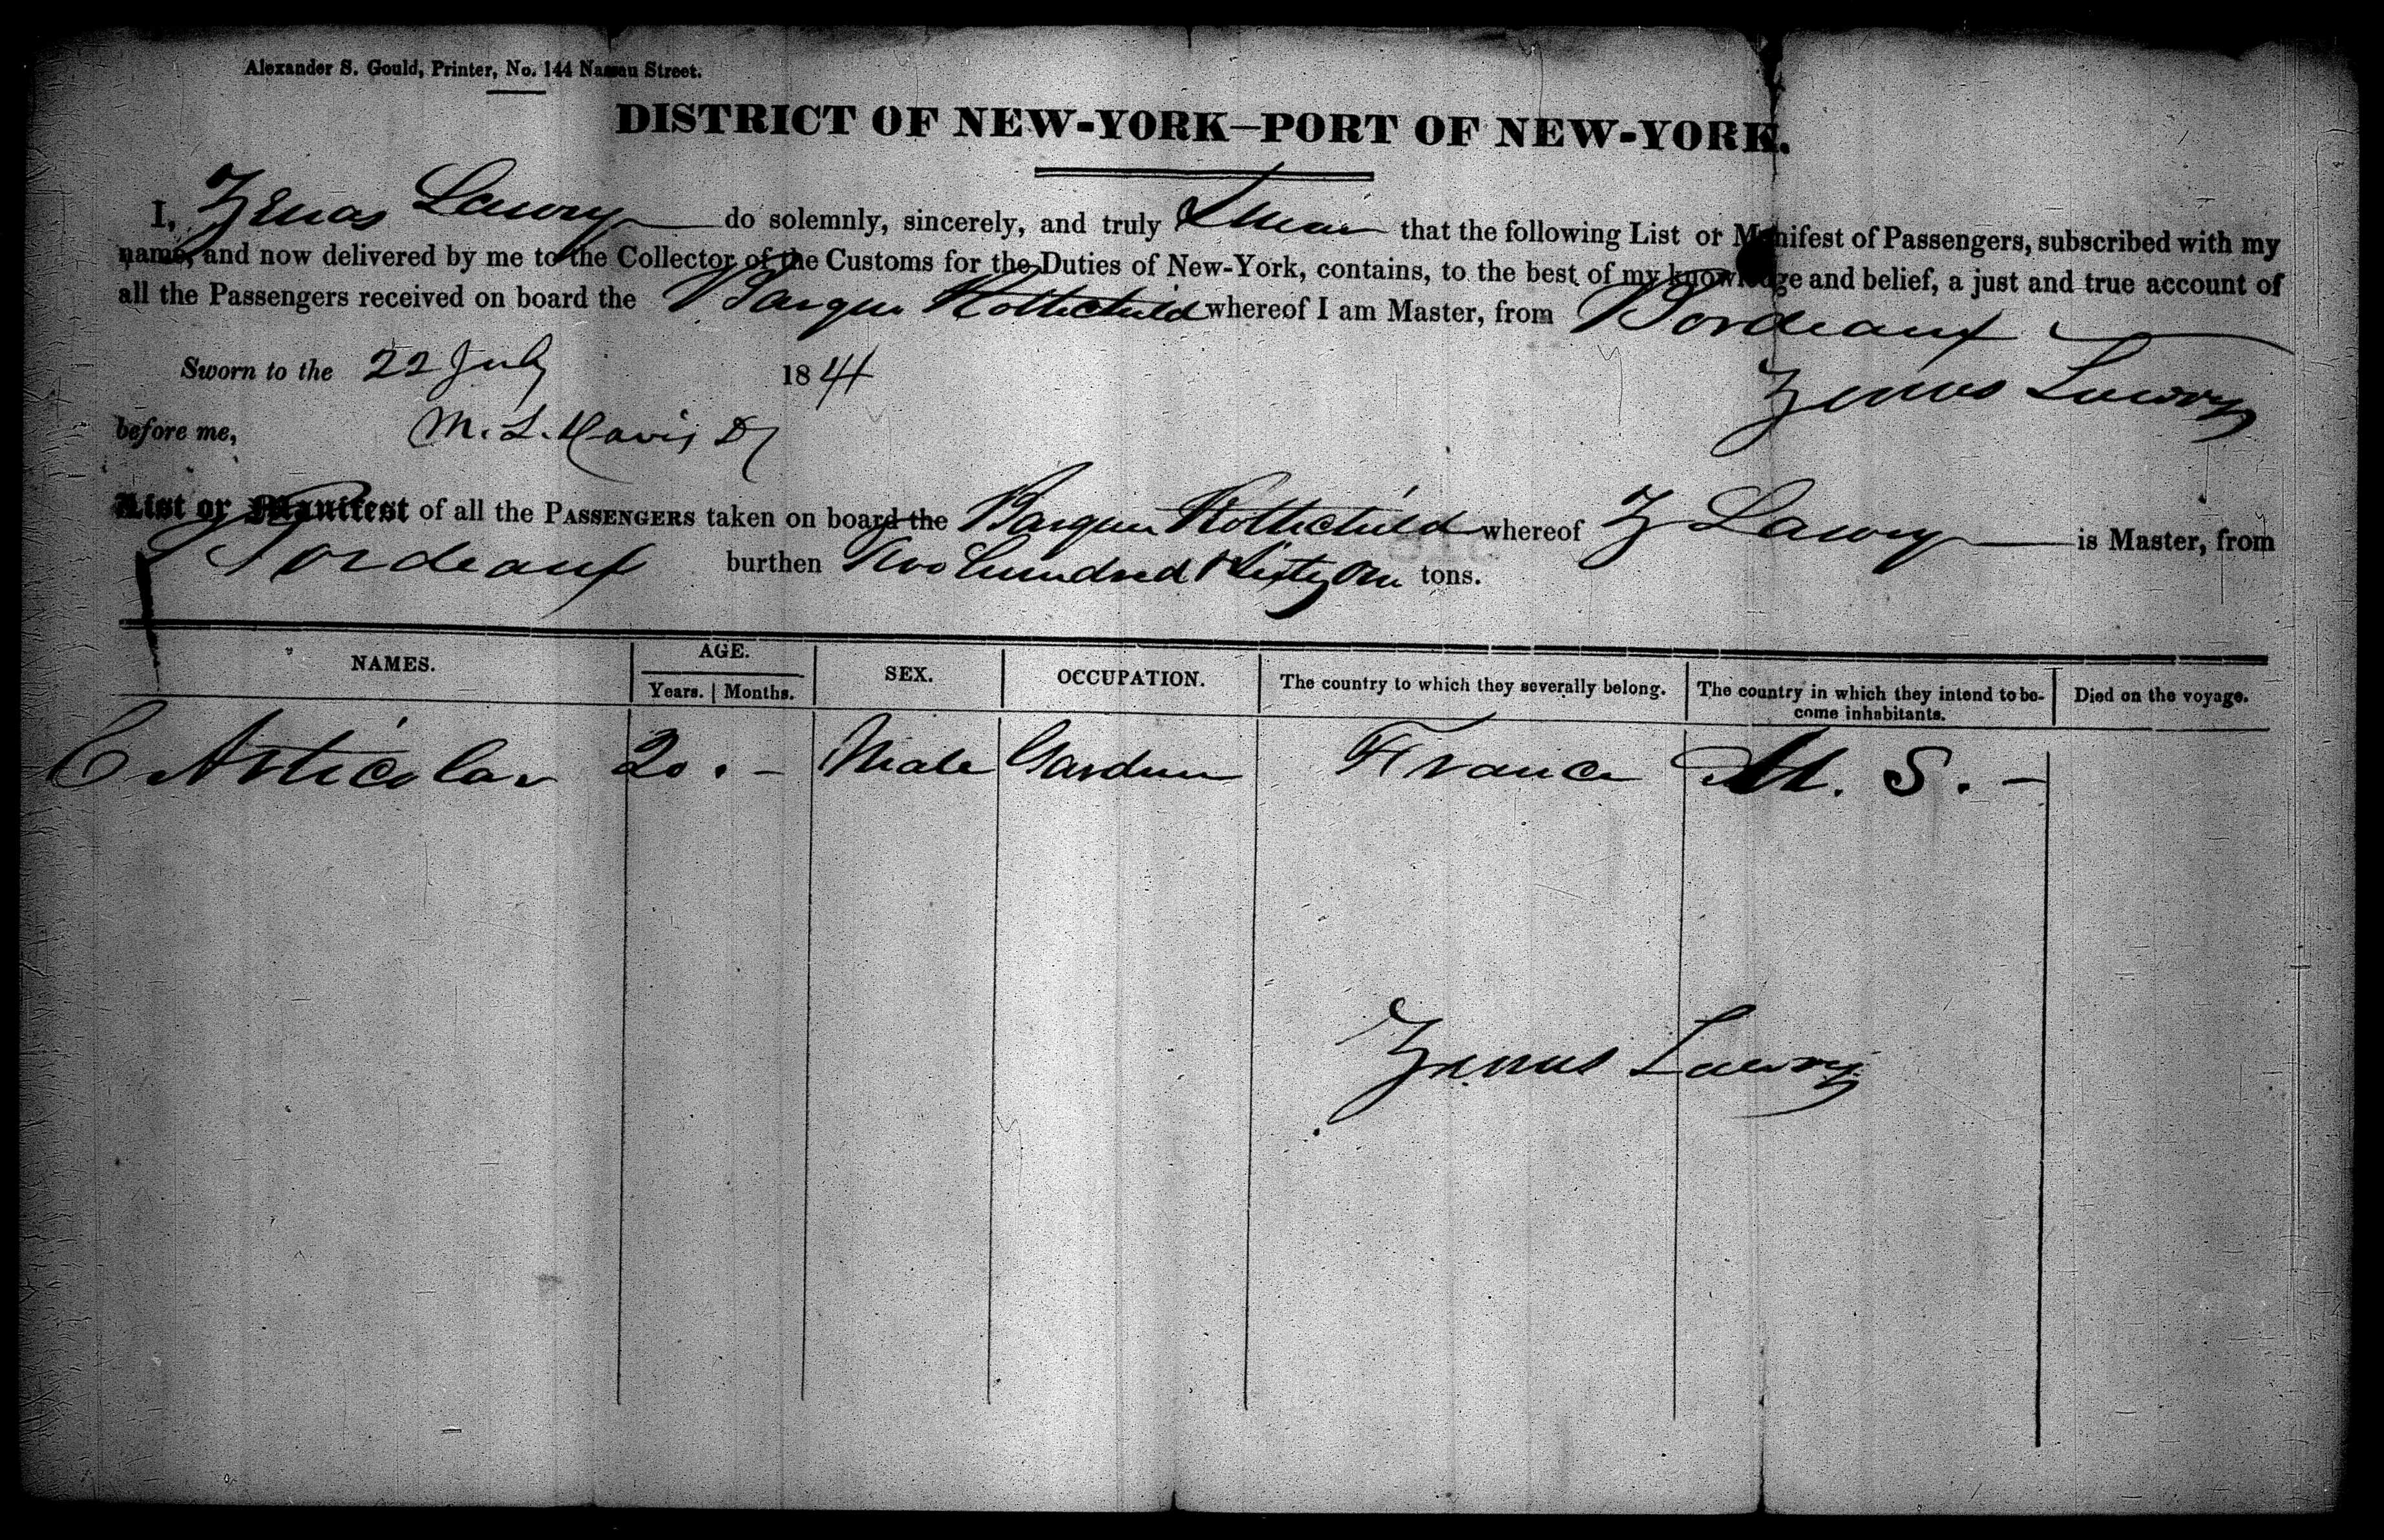 Alexander S. Gould, Printer, No. 144 Nassau Street.
DISTRICT OF NEW-YORK—PORT OF NEW-YORK.
I, Zenas Lawry do solemnly, sincerely, and truly Swear that the following List or Manifest of Passengers, subscribed with my
name, and now delivered by me to the Collector of the Customs for the Duties of New-York, contains, to the best of my knowledge and belief, a just and true account of
all the Passengers received on board the Barque Rothschild whereof I am Master, from Bordeaux
Sworn to the 22 July 1841
Zenas Lawry
before me, M. L. Davis
List or Manifest of all the PASSENGERS taken on board the Barque Rothschild whereof Z Lawry is Master, from
Bordeaux burthen Two hundred Sixty One tons.
NAMES. AGE. SEX. OCCUPATION. The country to which they severally belong. The country in which they intend to be-
come inhabitants. Died on the voyage.
Years. Months.
E Articolar 20 . - Male Gardner France U. S. -
Zenas Lawry